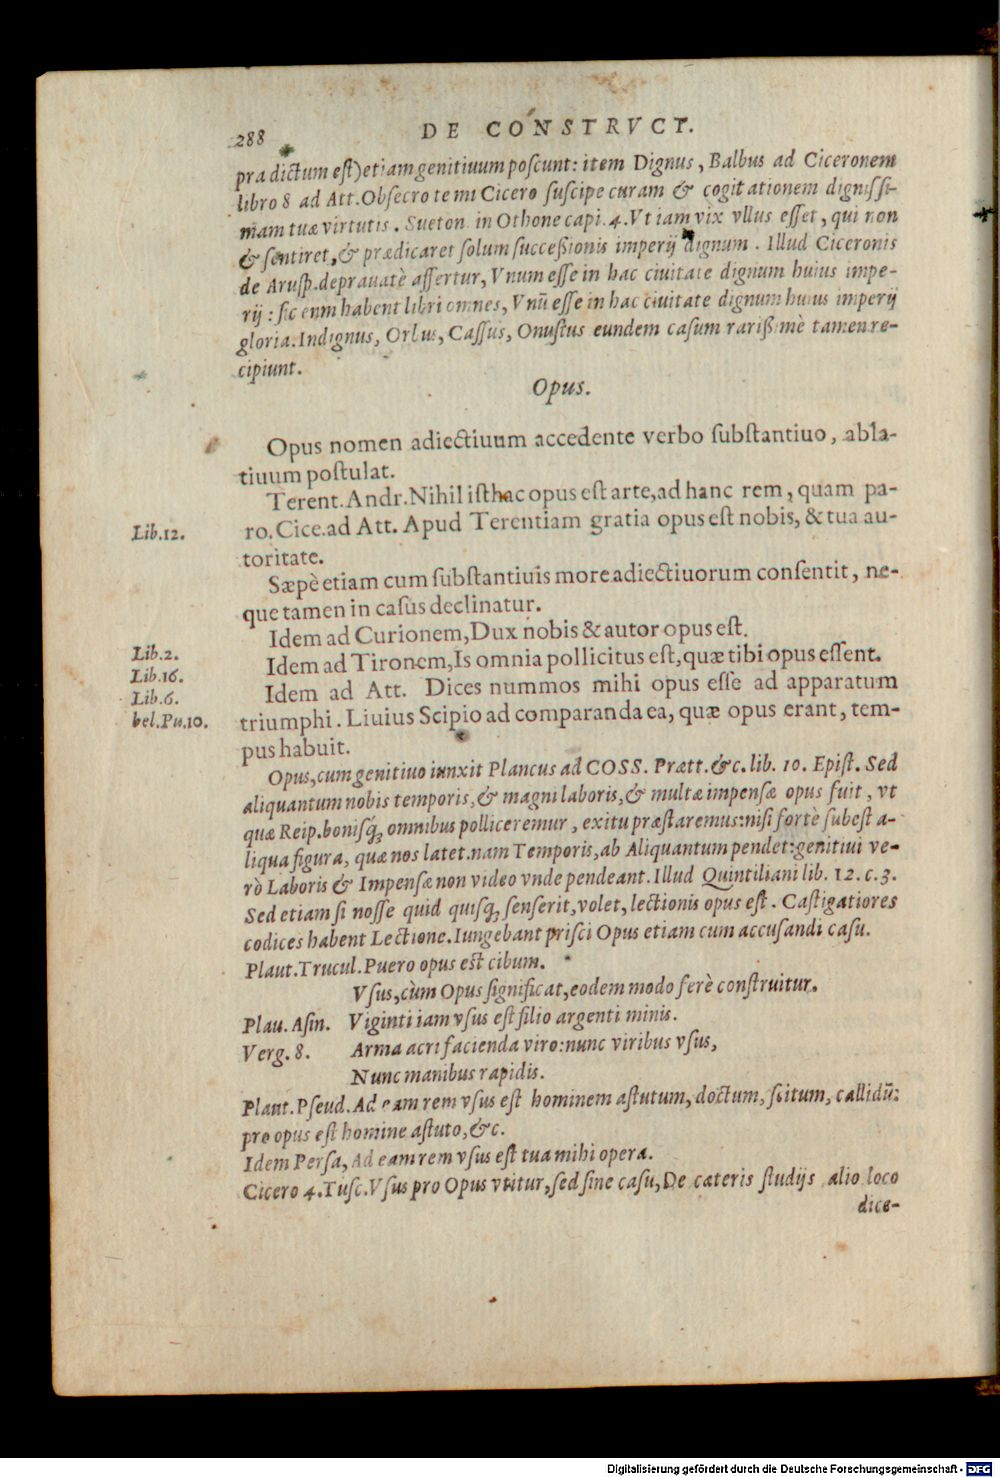 288
DE CONSTRVCT.
pra dictum est) etiam genitiuum poscunt: item Dignus, Balbus ad Ciceronem
libro 8 ad Att. Obsecro te mi Cicero suscipe curam & cogitationem dignissi-
mam tuæ virtutis. Sueton. in Othone capi. 4. Vt iam vix vllus esset, qui non
& sentiret, & prædicaret solum successionis imperij dignum. Illud Ciceronis
de Arusp. deprauatè affertur, Vnum esse in hac ciuitate dignum huius impe-
rij: sic enm habent libri omnes, Vnū esse in hac ciuitate dignum huius imperij
gloria. Indignus, Orbus, Cassus, Onustus eundem casum rarissimè tamen re-
cipiunt.
Opus.
Opus nomen adiectiuum accedente verbo substantiuo, abla-
tiuum postulat.
Terent. Andr. Nihil isthac opus est arte, ad hanc rem, quam pa-
Lib.12.
ro. Cice. ad Att. Apud Terentiam gratia opus est nobis, & tua au-
toritate.
Sæpè etiam cum substantiuis more adiectiuorum consentit, ne-
que tamen in casus declinatur.
Idem ad Curionem, Dux nobis & autor opus est.
Lib.2.
Idem ad Tironem, Is omnia pollicitus est, quæ tibi opus essent.
Lib.16.
Idem ad Att. Dices nummos mihi opus esse ad apparatum
Lib.6.
triumphi. Liuius Scipio ad comparanda ea, quæ opus erant, tem-
bel.Pu.10.
pus habuit.
Opus, cum genitiuo iunxit Plancus ad COSS. Prætt. &c. lib. 10. Epist. Sed
aliquantum nobis temporis, & magni laboris, & multæ impensæ opus fuit, vt
quæ Reip. bonisq́; omnibus polliceremur, exitu præstaremus: nisi fortè subest a-
liqua figura, quæ nos latet. nam Temporis, ab Aliquantum pendet: genitiui ve-
rò Laboris & Impensæ non video vnde pendeant. Illud Quintiliani lib. 12. c. 3.
Sed etiam si nosse quid quisq́; senserit, volet, lectionis opus est. Castigatiores
codices habent Lectione. Iungebant prisci Opus etiam cum accusandi casu.
Plaut. Trucul. Puero opus est cibum.
Vsus, cùm Opus significat, eodem modo ferè construitur.
Plau. Asin. Viginti iam vsus est filio argenti minis.
Verg. 8. Arma acri facienda viro: nunc viribus vsus,
Nunc manibus rapidis.
Plaut. Pseud. Ad eam rem vsus est hominem astutum, doctum, scitum, callidū:
pro opus est homine astuto, &c.
Idem Persa, Ad eam rem vsus est tua mihi opera.
Cicero 4. Tusc. Vsus pro Opus vtitur, sed sine casu, De cateris studijs alio loco
dice-
Digitalisierung gefördert durch die Deutsche Forschungsgemeinschaft - DFG